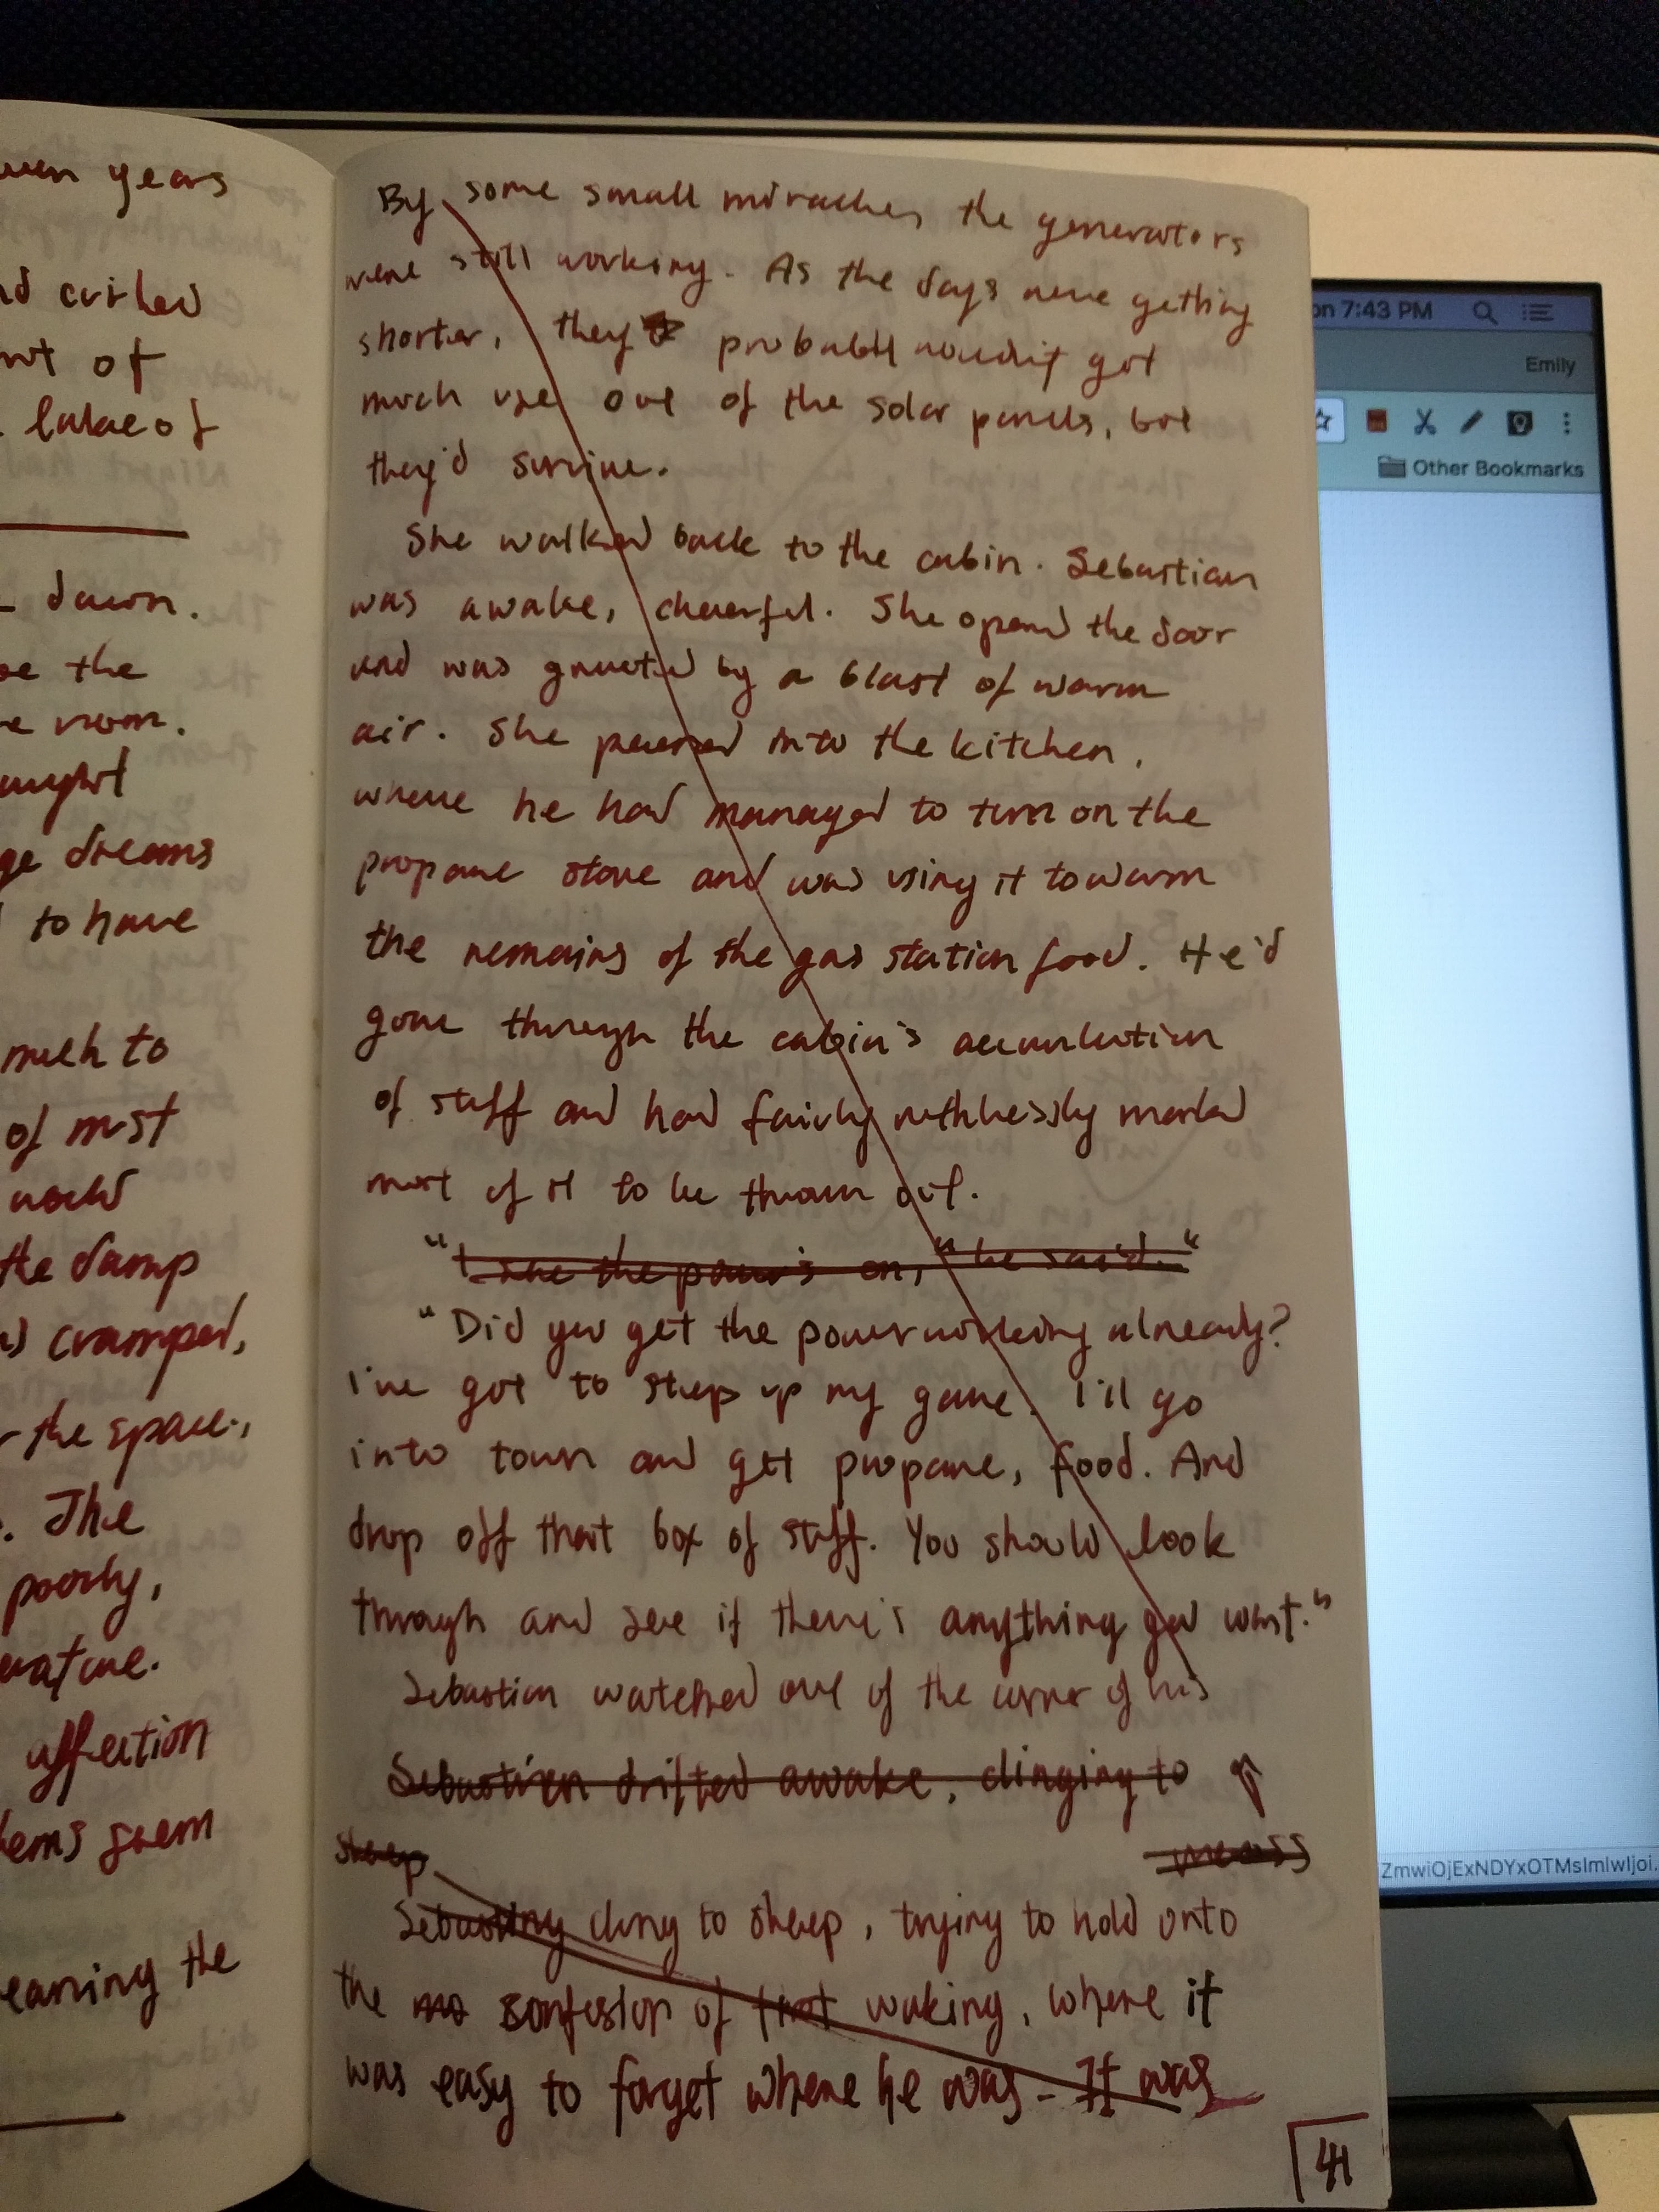 wen years
nd curled
nt of
lake of
dawn.
se the
e room.
ought
ge dreams
to have
much to
of most
world
the damp
cramped,
the space,
. The
poorly,
erature.
affection
tems seem
earning the
By some small miracle, the generators
were still working. As the days were getting
shorter, they probably wouldn't get
much use out of the solar panels, but
they'd survive.
She walked back to the cabin. Sebastian
was awake, cheerful. She opened the door
and was greeted by a blast of warm
air. She peered into the kitchen,
where he had managed to turn on the
propane stove and was using it to warm
the remains of the gas station food. He'd
gone through the cabin's accumulation
of stuff and had fairly ruthlessly marked
most of it to be thrown out.
"I see the power's on," he said."
"Did you get the power working already?
I've got to step up my game. I'll go
into town and get propane, food. And
drop off that box of stuff. You should look
through and see if there's anything you want."
Sebastian watched out of the corner of his
Sebastian drifted awake, clinging to
sleep
Sebastian clung to sleep, trying to hold onto
the confusion of first waking, where it
was easy to forget where he was - It was
41
on 7:43 PM
Emily
Other Bookmarks
ZmwiOjExNDYxOTMsImlwIjoi.